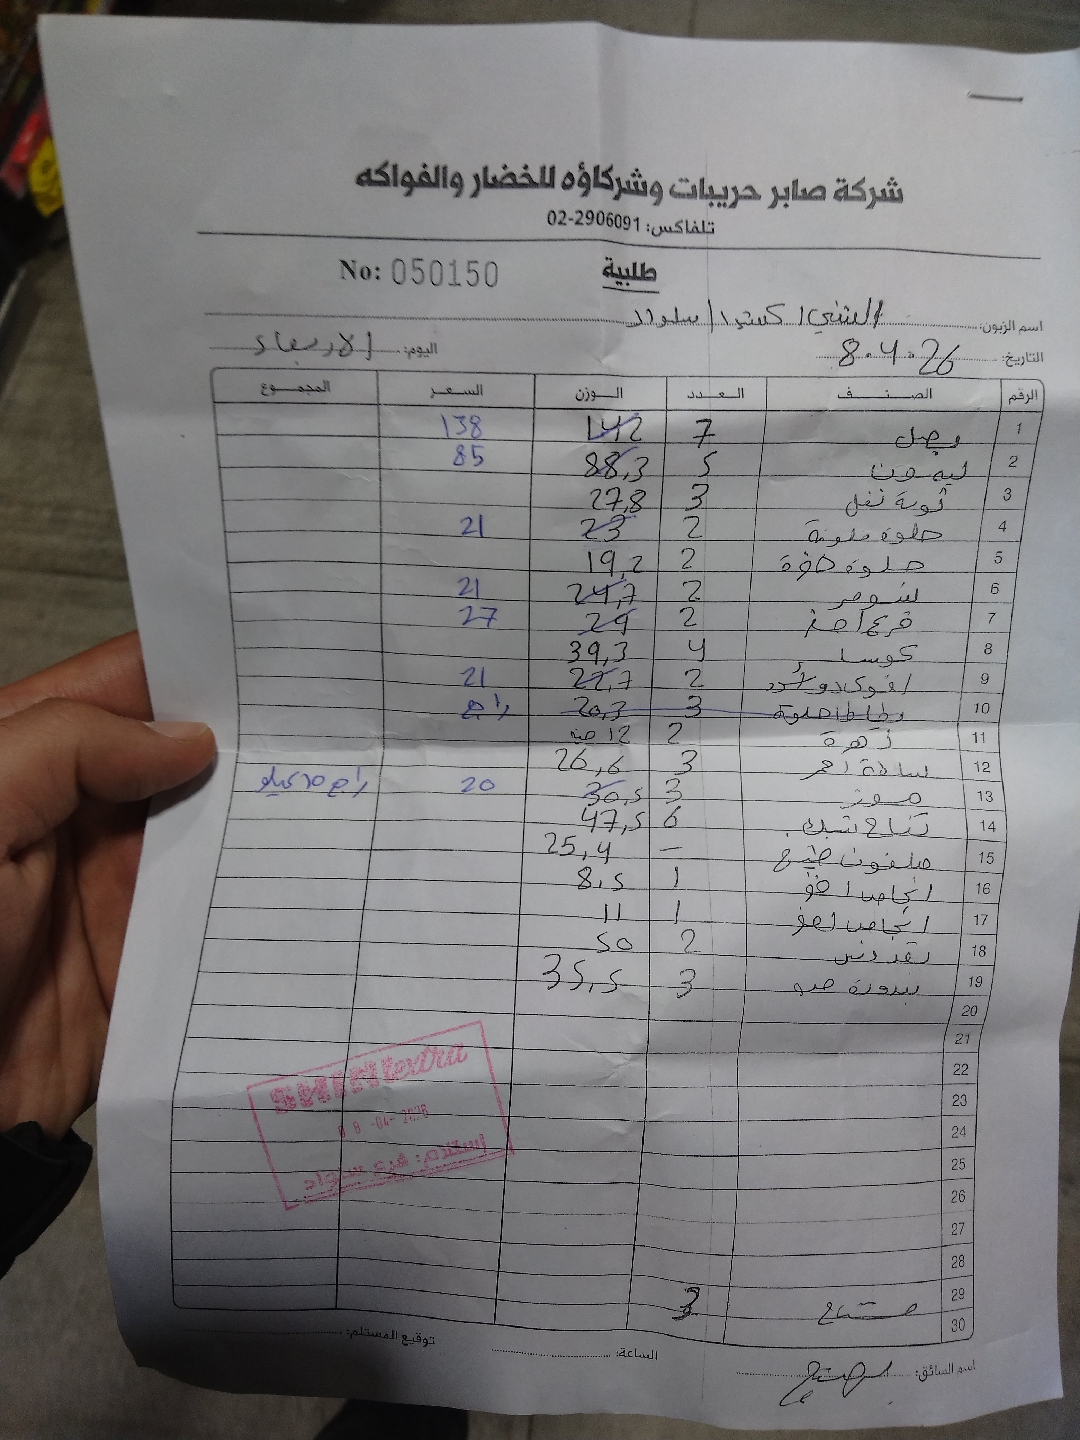 شركة صابر حريبات وشركاؤه للخضار والفواكه
تلفاكس: 02-2906091
طلبية No: 050150
اسم الزبون: الشني اكسترا / سلواد
التاريخ: 8.4.26 اليوم: الاربعاء
الرقم الصنف العدد الوزن السعر المجموع
1 بصل 7 142 138
2 ليمون 5 88,3 85
3 ثومة نفل 3 27,8
4 حلوة ملونة 2 23 21
5 حلوة 2 19,2
6 شومر 2 24,7 21
7 قرع اصفر 2 29 27
8 كوسا 4 39,3
9 افوكادو 2 22,7 21
10 بطاطا حلوة 3 20,3 راجع
11 زهرة 2 12 حبة
12 احمر 3 26,6
13 موز 3 30,5 20 راجع 10 كيلو
14 تفاح 6 47,5
15 ملفوف - 25,4
16 انجاص اخضر 1 8,5
17 انجاص اصفر 1 11
18 بقدونس 2 50
19 بندورة 3 35,5
20
21
22
23
24
25
26
27
28
29 مشتاح 3
30
SHINI extra
08-04-2026
استلام: فرع سلواد
اسم السائق: الساعة: توقيع المستلم: